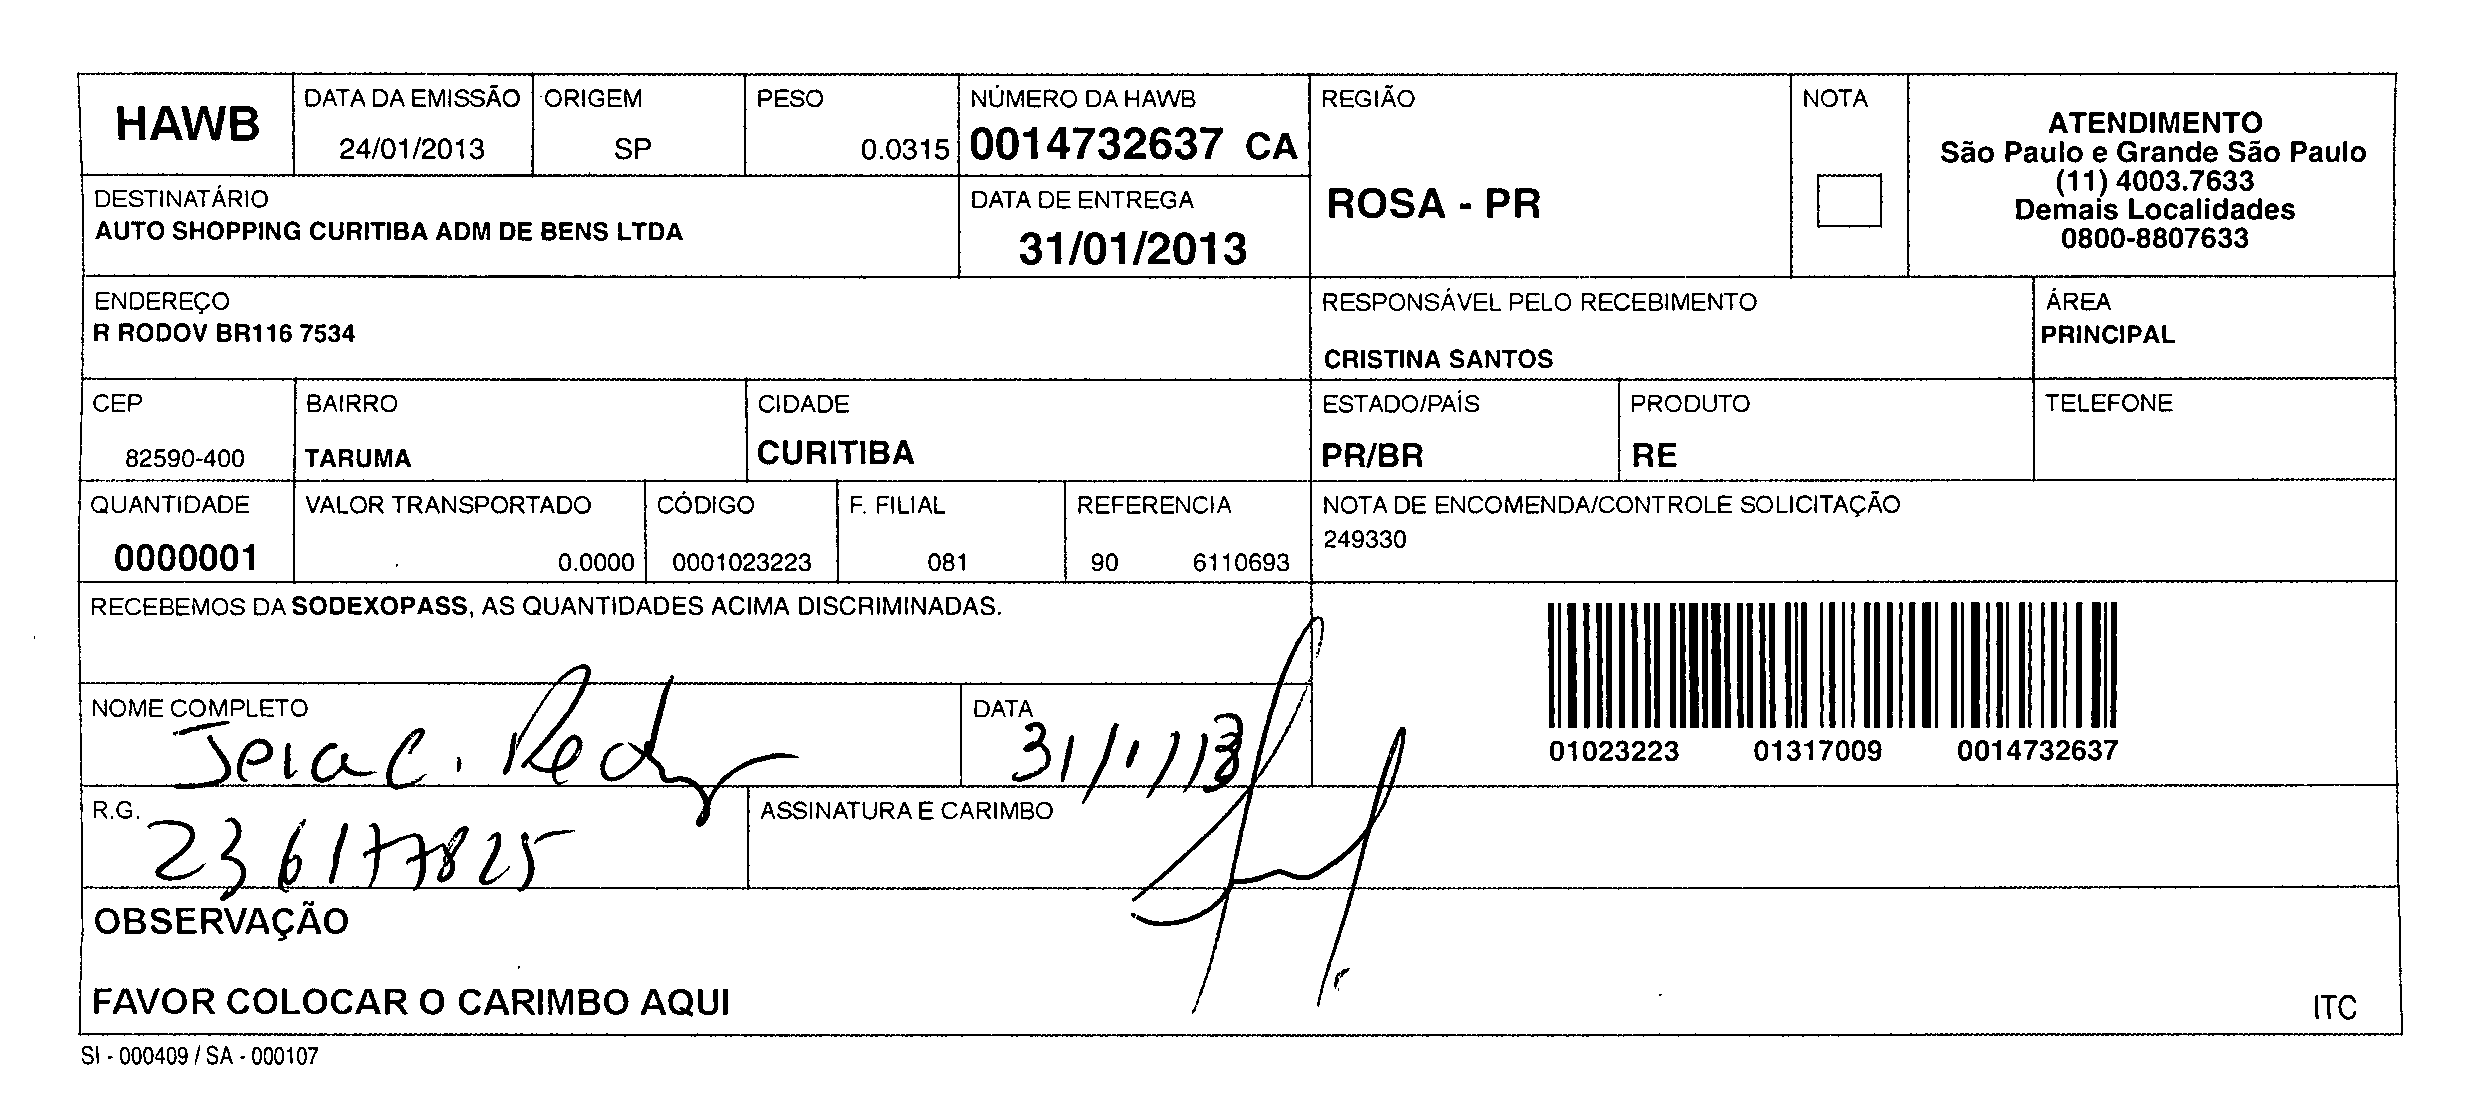 HAWB
DATA DA EMISSÃO
24/01/2013
ORIGEM
SP
PESO
0.0315
NÚMERO DA HAWB
0014732637 CA
REGIÃO
ROSA - PR
NOTA
ATENDIMENTO
São Paulo e Grande São Paulo
(11) 4003.7633
Demais Localidades
0800-8807633
DESTINATÁRIO
AUTO SHOPPING CURITIBA ADM DE BENS LTDA
DATA DE ENTREGA
31/01/2013
ENDEREÇO
R RODOV BR116 7534
RESPONSÁVEL PELO RECEBIMENTO
CRISTINA SANTOS
ÁREA
PRINCIPAL
CEP
82590-400
BAIRRO
TARUMA
CIDADE
CURITIBA
ESTADO/PAÍS
PR/BR
PRODUTO
RE
TELEFONE
QUANTIDADE
0000001
VALOR TRANSPORTADO
0.0000
CÓDIGO
0001023223
F. FILIAL
081
REFERENCIA
90 6110693
NOTA DE ENCOMENDA/CONTROLE SOLICITAÇÃO
249330
RECEBEMOS DA SODEXOPASS, AS QUANTIDADES ACIMA DISCRIMINADAS.
NOME COMPLETO
DATA
31/1/13
01023223 01317009 0014732637
R.G.
236177825
ASSINATURA E CARIMBO
OBSERVAÇÃO
FAVOR COLOCAR O CARIMBO AQUI
ITC
SI - 000409 / SA - 000107